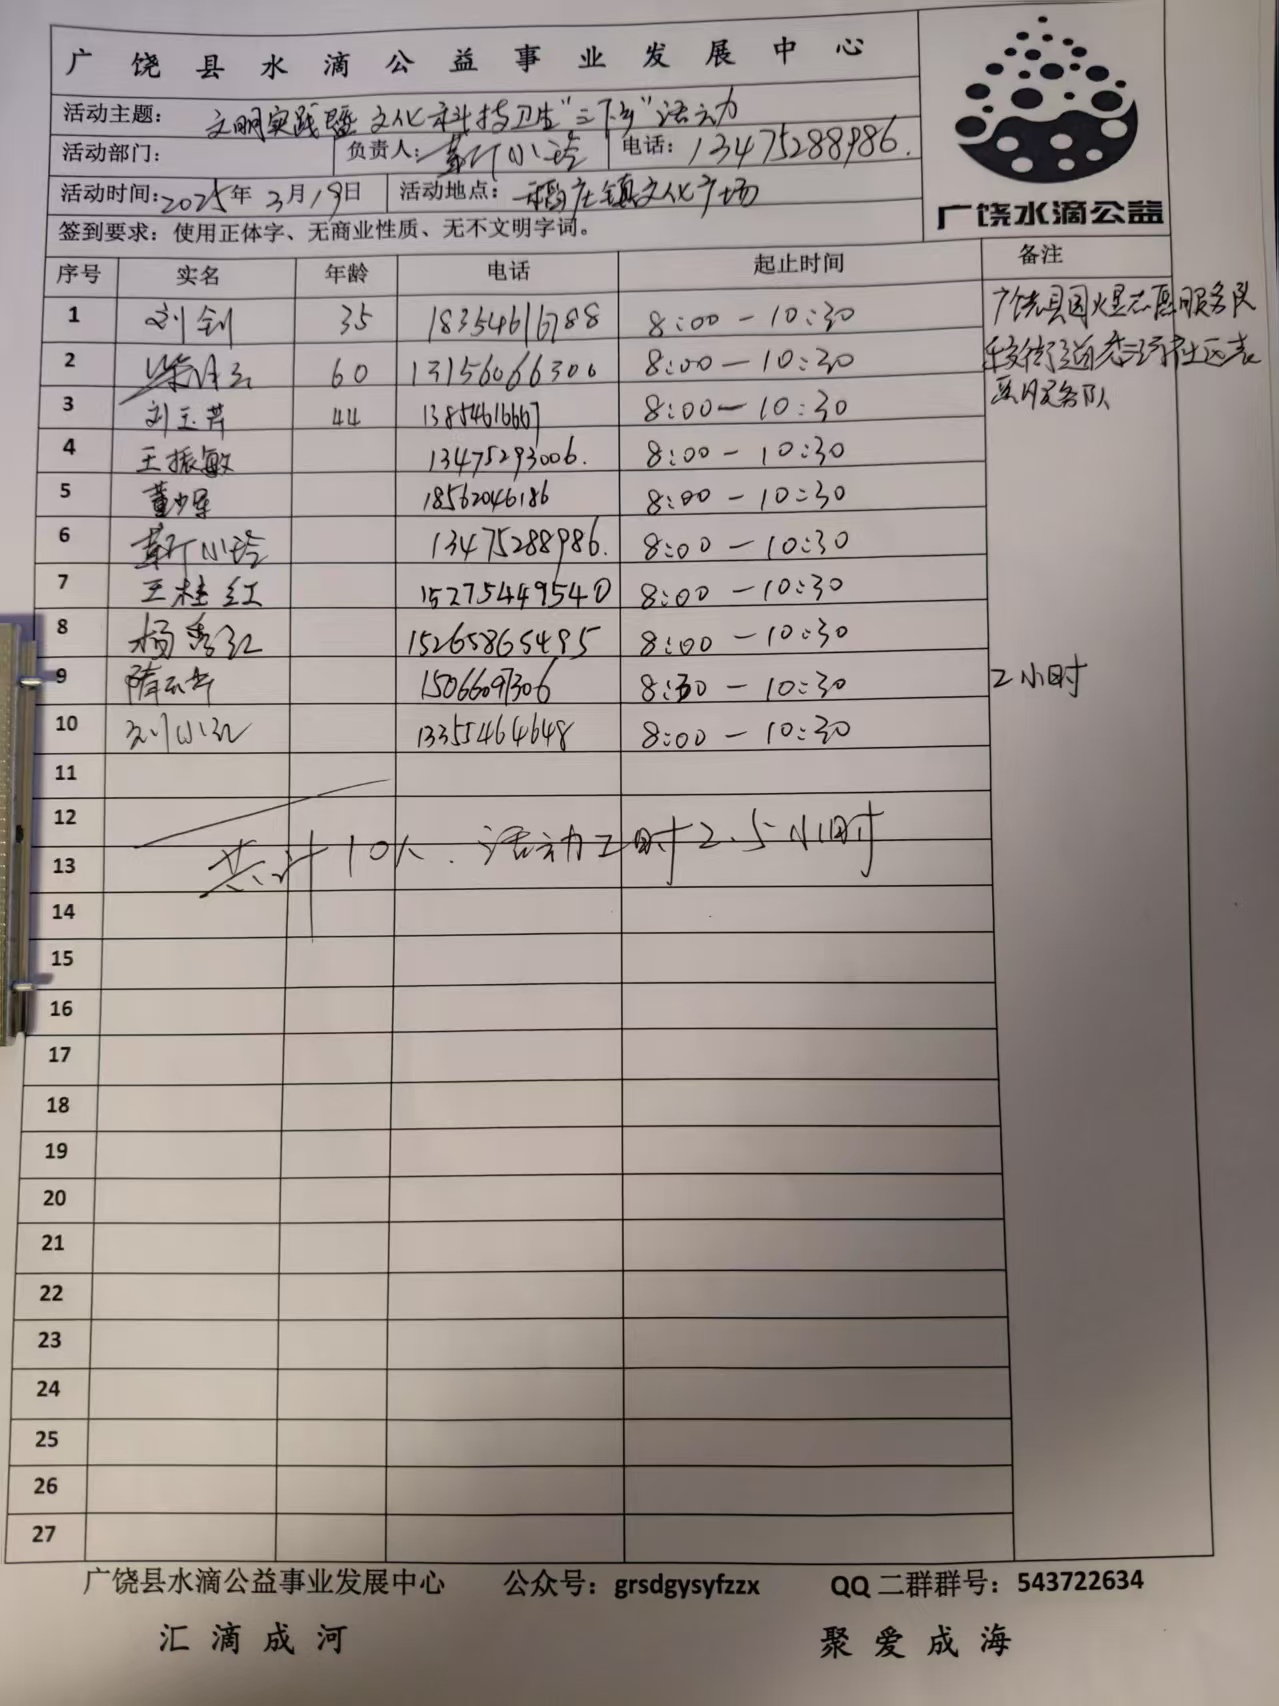 广饶县水滴公益事业发展中心
活动主题： 文明实践暨文化科技卫生“三下乡”活动
活动部门： 负责人： 靳小玲 电话： 13475288986.
活动时间：2025年3月19日 活动地点： 稻庄镇文化广场
签到要求：使用正体字、无商业性质、无不文明字词。
广饶水滴公益
序号 实名 年龄 电话 起止时间 备注
1 刘剑 35 18354616788 8:00－10:30 广饶县因火星志愿服务队
2 60 13156066300 8:00－10:30 乐安街道
3 刘玉芹 44 13854616667 8:00－10:30 愿服务队
4 王振敏 13475293006. 8:00－10:30
5 董少军 18562046186 8:00－10:30
6 靳小玲 13475288986. 8:00－10:30
7 王桂红 15275449540 8:00－10:30
8 杨秀红 15265865495 8:00－10:30
9 隋云 15066097306 8:30－10:30 2小时
10 刘小红 13355464648 8:00－10:30
11
12
共计10人.活动工时2.5小时
13
14
15
16
17
18
19
20
21
22
23
24
25
26
27
广饶县水滴公益事业发展中心 公众号：grsdgysyfzzx QQ二群群号：543722634
汇滴成河 聚爱成海